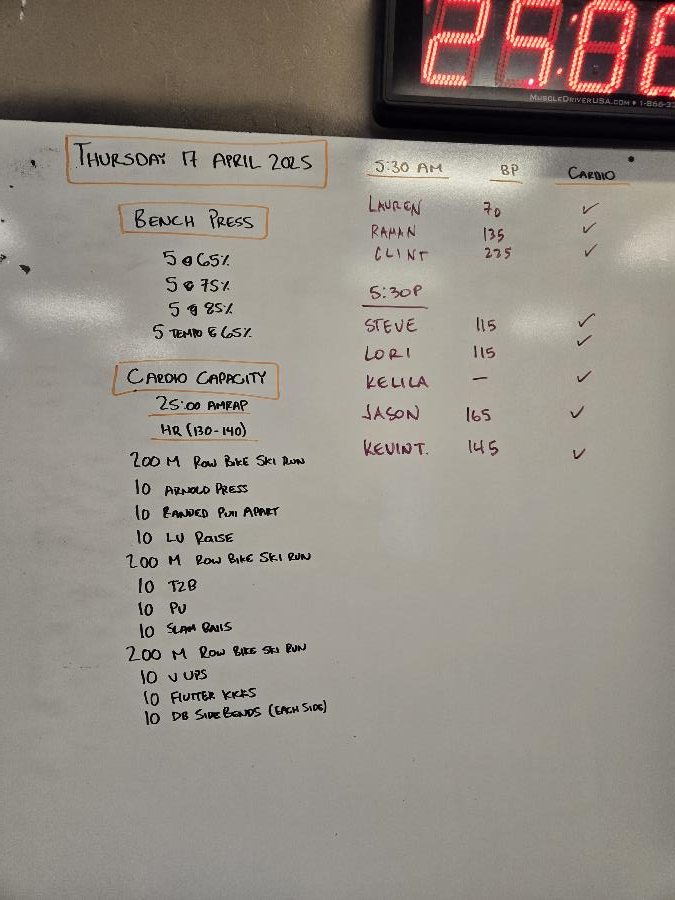 25:00
MUSCLEDRIVERUSA.COM • 1-866-
THURSDAY 17 APRIL 2025
BENCH PRESS
5 @ 65%
5 @ 75%
5 @ 85%
5 TEMPO @ 65%
CARDIO CAPACITY
25:00 AMRAP
HR (130-140)
200 M ROW BIKE SKI RUN
10 ARNOLD PRESS
10 BANDED PULL APART
10 LU RAISE
200 M ROW BIKE SKI RUN
10 T2B
10 PU
10 SLAM BALLS
200 M ROW BIKE SKI RUN
10 V UPS
10 FLUTTER KICKS
10 DB SIDE BENDS (EACH SIDE)
5:30 AM BP CARDIO
LAUREN 70 ✓
RAMAN 135 ✓
CLINT 225 ✓
5:30P
STEVE 115 ✓
LORI 115 ✓
KELILA — ✓
JASON 165 ✓
KEVIN T. 145 ✓